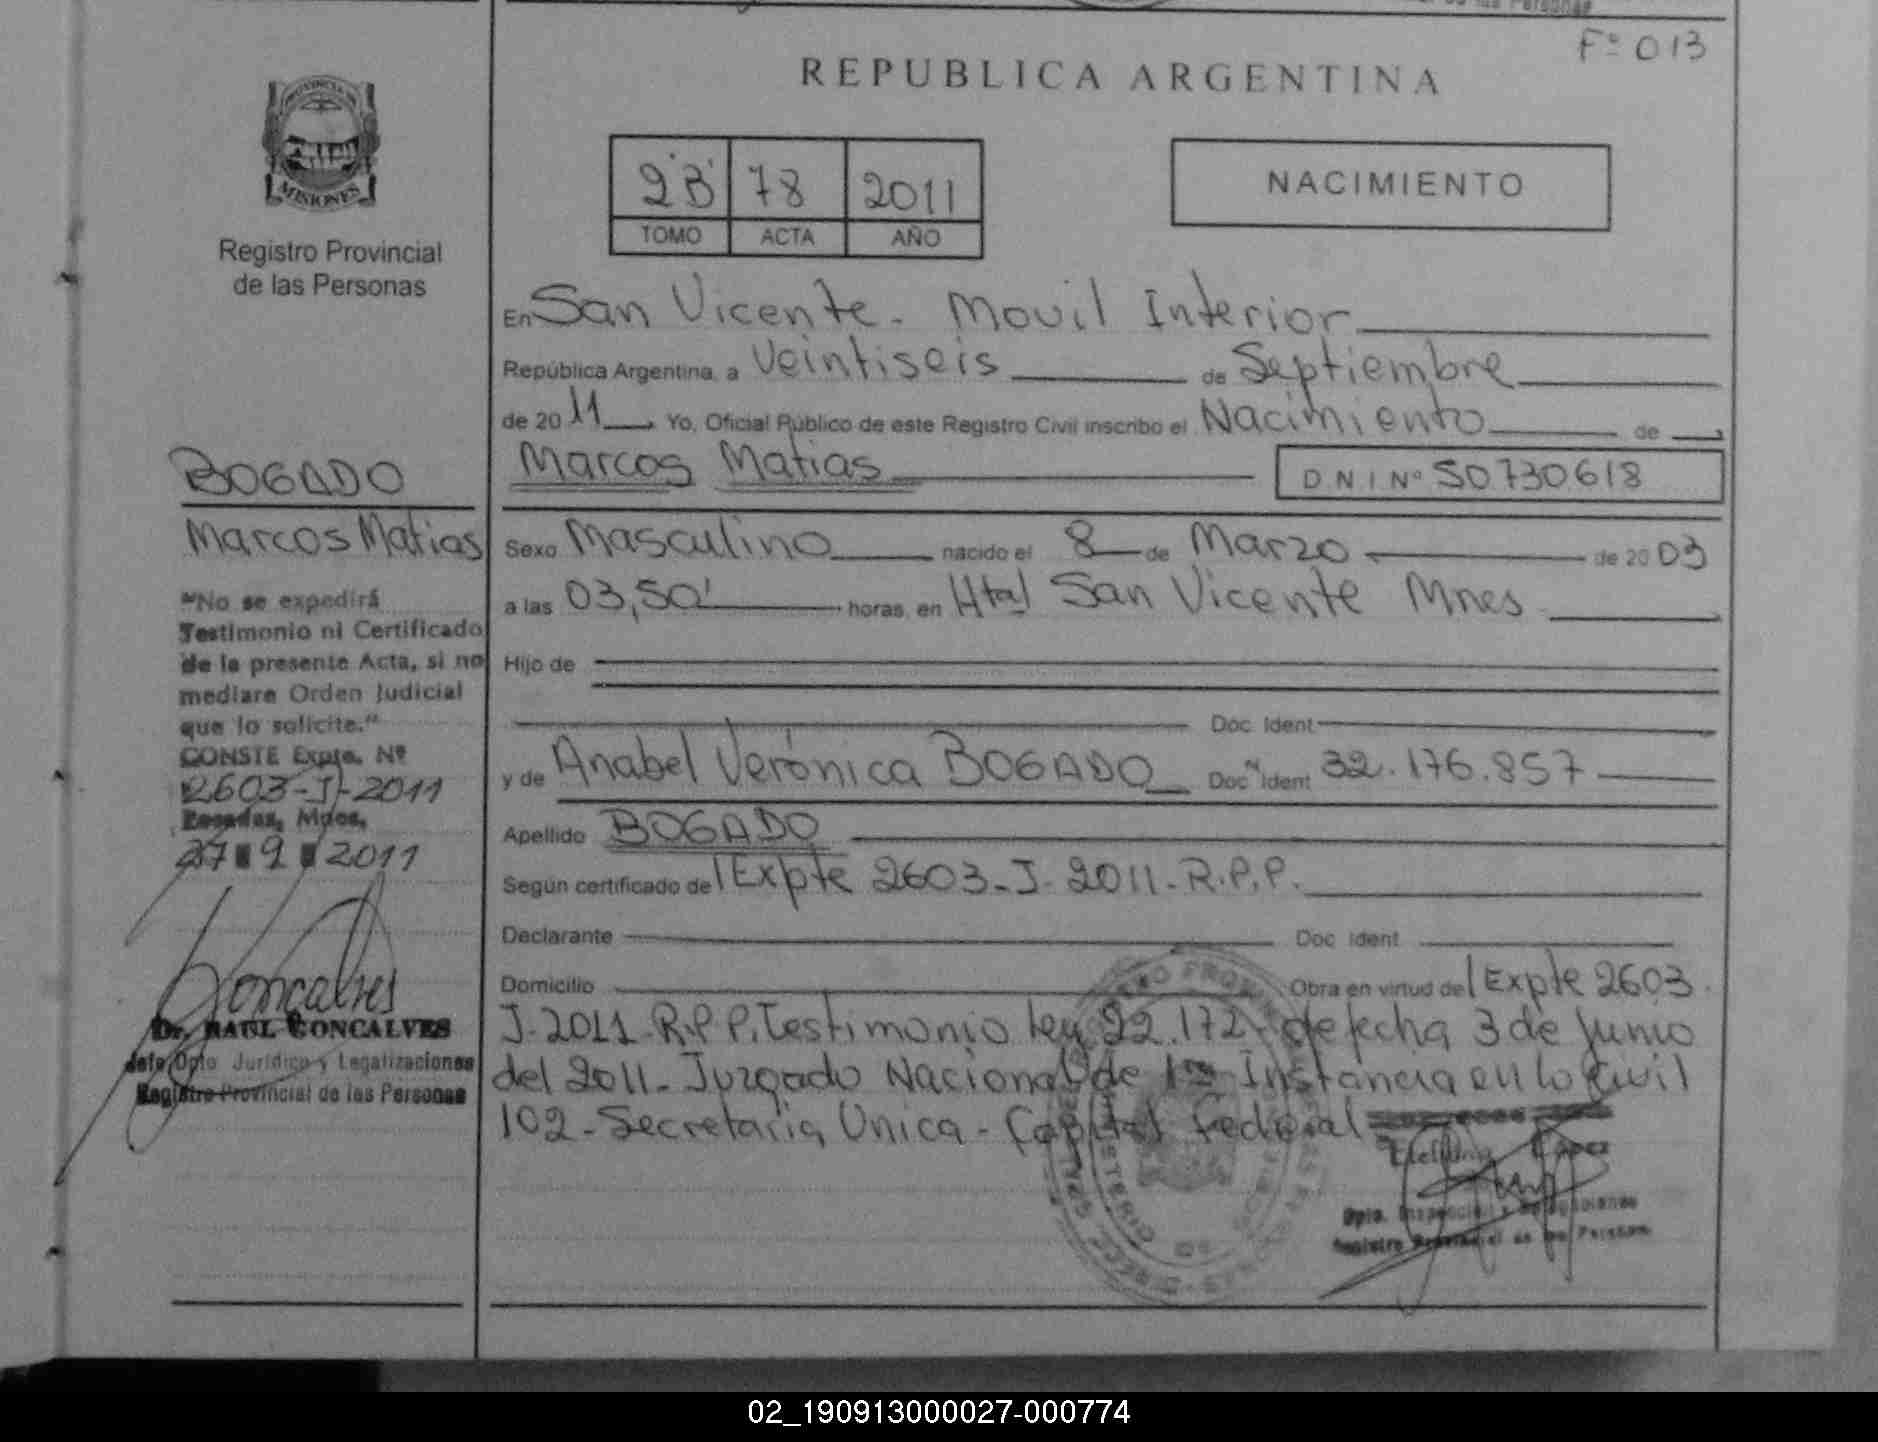 Fº 013
REPUBLICA ARGENTINA
MISIONES
Registro Provincial
de las Personas
2'B' 78 2011
TOMO ACTA AÑO
NACIMIENTO
En San Vicente - Movil Interior
República Argentina, a Veintiseis de Septiembre
de 2011 Yo, Oficial Público de este Registro Civil inscribo el Nacimiento de
Marcos Matias
D N I Nº 50730618
Sexo Masculino nacido el 8 de Marzo de 2003
a las 03,50' horas, en Htal San Vicente Mnes
Hijo de
Doc. Ident
y de Anabel Verónica BOGADO Doc Ident 32.176.857
Apellido BOGADO
Según certificado de Expte 2603-J-2011-R.P.P.
Declarante Doc Ident
Domicilio Obra en virtud de Expte 2603
J-2011-R.P.P. Testimonio Ley 22.172 de fecha 3 de Junio
del 2011-Juzgado Nacional de 1ra Instancia en lo Civil
102-Secretaria Unica-Capital Federal
BOGADO
Marcos Matias
"No se expedirá
Testimonio ni Certificado
de la presente Acta, si no
mediare Orden Judicial
que lo solicite."
CONSTE Expte. Nº
2603-J-2011
Posadas, Mnes,
27 9 2011
Goncalves
Dr. RAUL GONCALVES
Jefe Dpto Jurídico y Legalizaciones
Registro Provincial de las Personas
López
Dpto. Inspección
Registro Provincial de las Personas
02_190913000027-000774